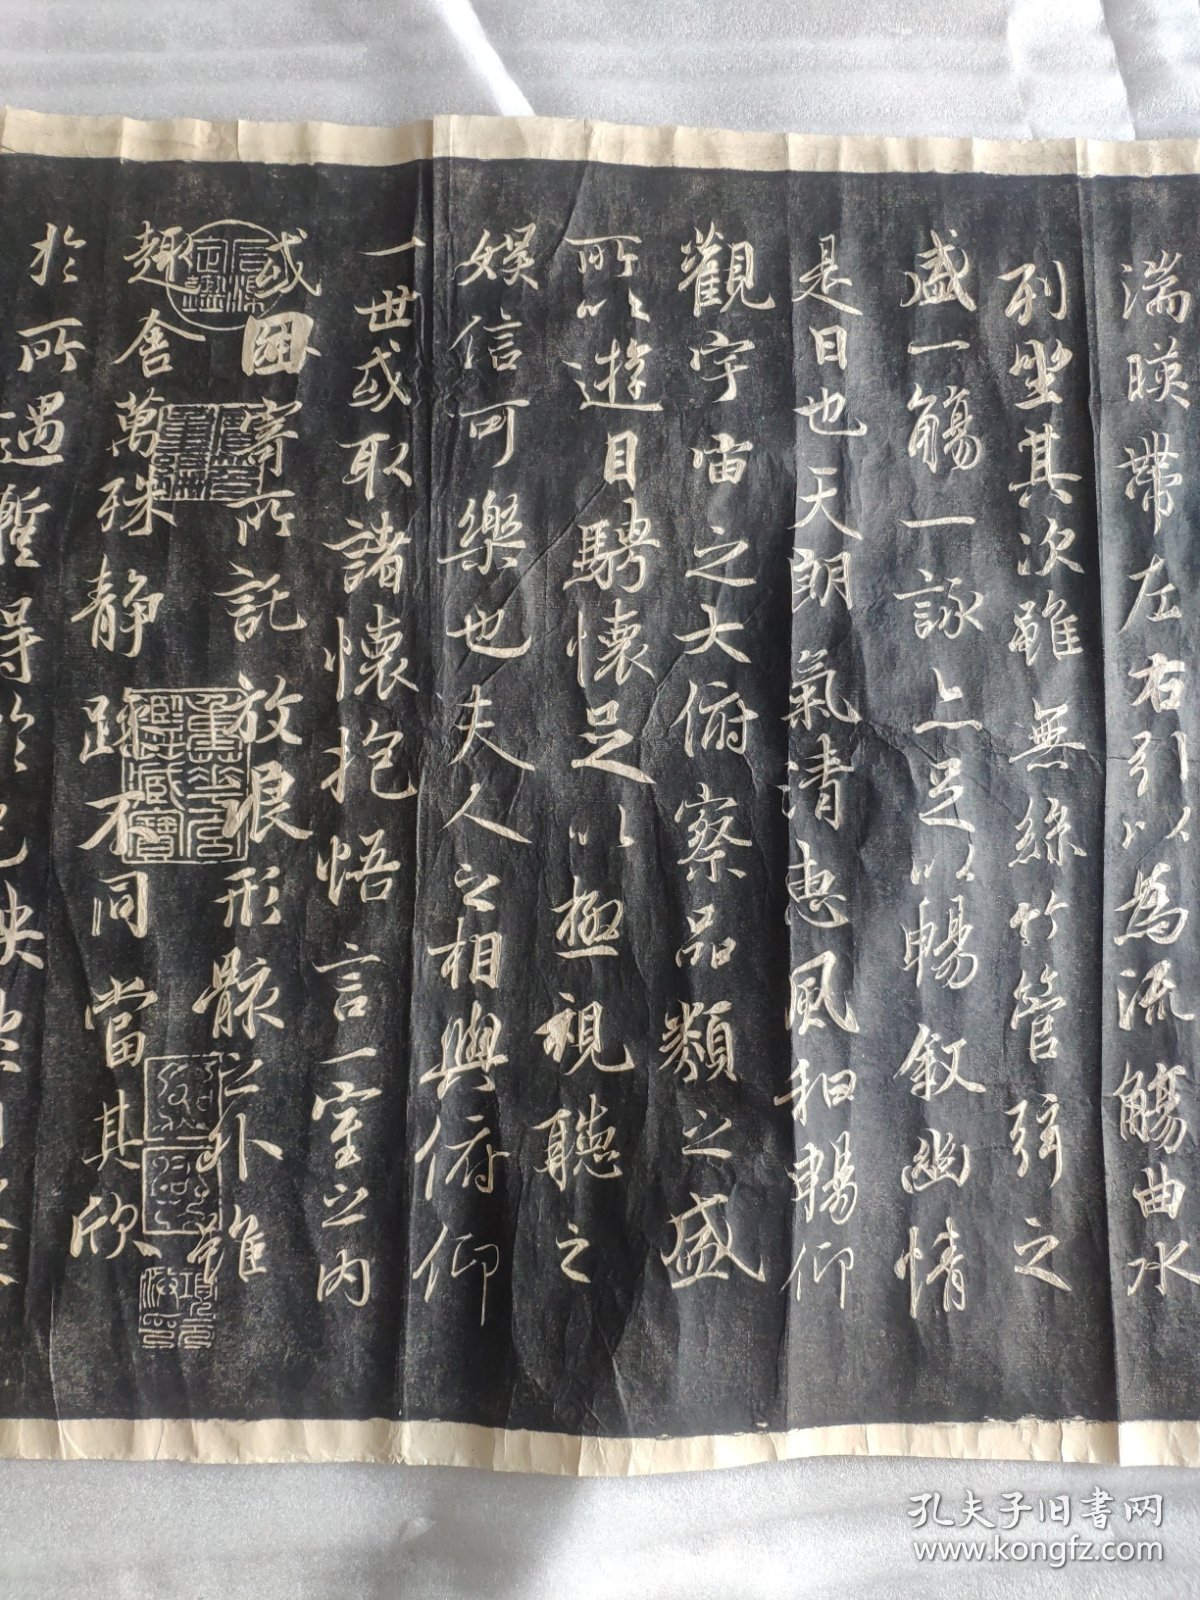 湍暎帶左右引以為流觴曲水
列坐其次雖無絲竹管弦之
盛一觴一詠上足以暢敘幽情
是日也天朗氣清惠風和暢仰
觀宇宙之大俯察品類之盛
所以遊目騁懷足以極視聽之
娛信可樂也夫人之相與俯仰
一世或取諸懷抱悟言一室之內
或因寄所託放浪形骸之外雖
趣舍萬殊靜躁不同當其欣
於所遇暫得於己快
孔夫子旧书网
www.kongfz.com